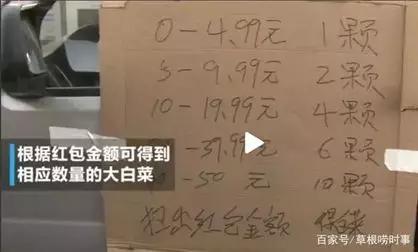 0-4.99元 1颗
5-9.99元 2颗
10-19.99元 4颗
-39.99元 6颗
-50元 10颗
根据红包金额可得到
相应数量的大白菜
红包金额
百家号/草根唠时事